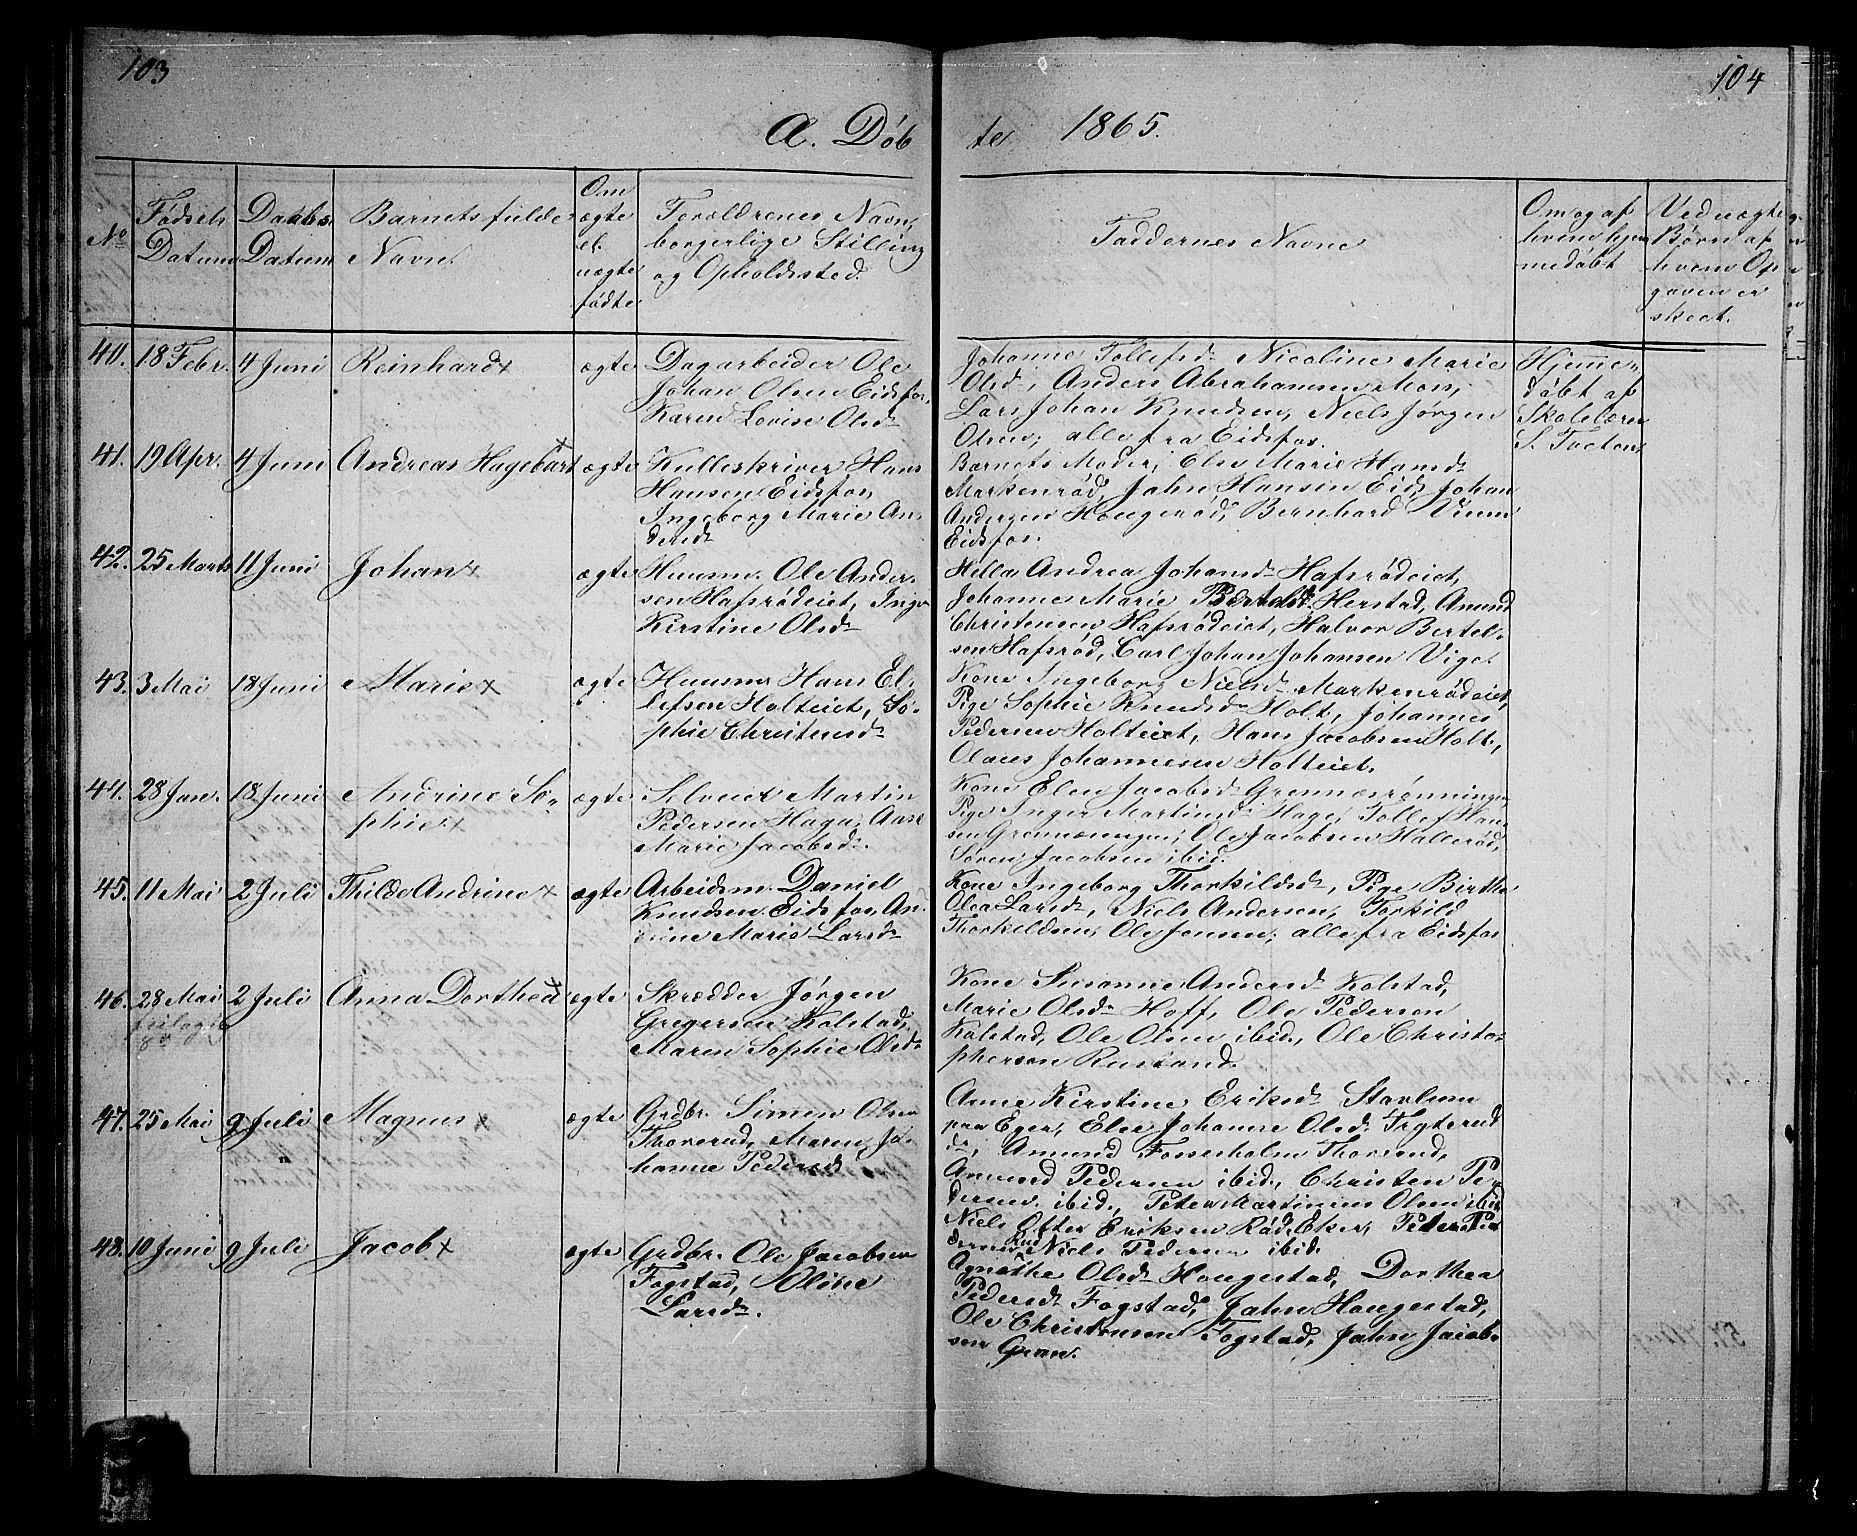 103
104
A. Døb
te 1865.
No
Fødsels
Datum
Daabs
Datum
Barnets fulde
Navn.
Om
ægte
el.
uægte
fødte
Forældrenes Navn,
borgerlige Stilling
og Opholdssted.
Faddernes Navne
Om og af
hvem hjem
medøbt
Ved uægte
Børn af
hvem Op
gaven er
skeet.
40. 18 Febr. 4 Juni Reinhard x ægte Dagarbeider Ole
Johan Olsen Eidsfos,
Karen Lovise Olsd
Johanne Tollefsd Nicoline Marie
Olsd, Anders Abrahamsen Moen,
Lars Johan Knudsen, Niels Jørgen
Olsen, alle fra Eidsfos.
Hjemme
døbt af
Skolelærer
S. Tveten
41. 19 Apr. 4 Juni Andreas Hagebart x ægte Kulleskriver Hans
Hansen Eidsfos,
Ingeborg Marie An-
dersd
Barnets Moder, Else Marie Hansd
Markenrød, Jahn Hansen Eids, Johan
Andersen Haugerød, Bernhard
Eidsfos.
42. 25 Marts 11 Juni Johan x ægte Huusm. Ole Ander-
sen Hafsrødeiet, Inge
Kirstine Olsd
Helle Andrea Johansd Hafsrødeiet,
Johanne Marie Bertelsd Herstad, Amund
Christensen Hafsrødeiet, Halvor Bertel-
sen Hafsrød, Carl Johan Johansen Vige.
43. 3 Mai 18 Juni Marie x ægte Huusm Hans El-
lefsen Holteiet, So-
phie Christensd
Kone Ingeborg Nielsd Markenrødeiet,
Pige Sophie Knudsd Holt, Johannes
Pedersen Holteiet, Hans Jacobsen Holt,
Olaus Johannesen Holteiet.
44. 28 Jan. 18 Juni Andrine So-
phie x ægte Selveier Martin
Pedersen Haga, Aase
Marie Jacobsd
Kone Elen Jacobsd Grennesrønningen,
Pige Inger Martinsd Hage, Tollef Han-
sen, Ole Jacobsen Hallerød,
Søren Jacobsen ibid.
45. 11 Mai 2 Juli Thilde Andrine x ægte Arbeidsm. Daniel
Knudsen Eidsfos, An-
drine Marie Larsd
Kone Ingeborg Thorkildsd, Pige Birthe
Olea Larsd, Niels Andersen, Torkild
Thorkildsen, Ole Jensen, alle fra Eidsfos
46. 28 Mai 2 Juli Anna Dorthea x ægte Skrædder Jørgen
Gregersen Kolstad,
Maren Sophie Olsd
Kone Susanne Andersd Kolstad,
Marie Olsd Hoff, Ole Pedersen
Kolstad, Ole Olsen ibid., Ole Christo-
phersen Rustand.
47. 25 Mai 9 Juli Magnus x ægte Grdbr. Simen Olsen
Thorerud, Maren Jo-
hanne Pedersd
Anne Kirstine Eriksd Stavlum
paa Eger, Else Johanne Olsd Frygterud
Amund Fossesholm Thorerud,
Amund Pedersen ibid., Christen Pe-
dersen ibid., Peter Martinius Olsen ibid
Niels Otter Eriksen Rød, Eker, Peter Pe
dersen Niels Pedersen ibid.
48. 10 Juni 9 Juli Jacob x ægte Grdbr. Ole Jacobsen
Fogstad, Oline
Larsd.
Agnethe Olsd Haugestad, Dorthea
Pedersd Fogstad, Jahn Haugestad,
Ole Christensen Fogstad, Jahn Jacob-
sen Gran.